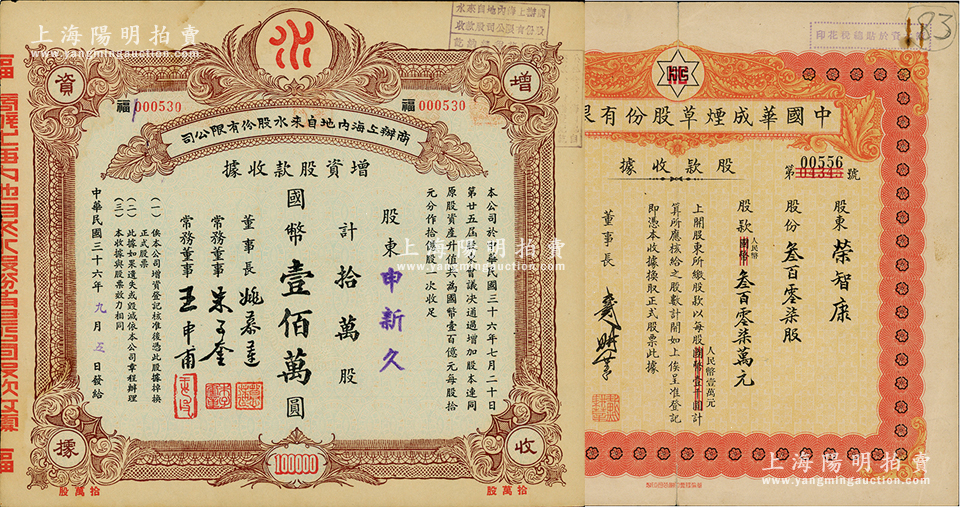 上海陽明拍賣
www.yangmingauction.com
商辦上海內地自來水
股份有限公司股款收
增
資
福 000530
福 000530
商辦上海內地自來水股份有限公司
增資股款收據
本公司於中華民國三十六年七月二十日
第廿五屆股東會議决通過增加股本連同
原股資產升值共為國幣壹百億元每股拾
元分作拾億股一次收足
股東 申新久
計拾萬股
國幣壹佰萬圓
董事長 姚慕蓮
常務董事 朱子奎
常務董事 王申甫
(一) 俟本公司增資登記核准後憑此股據掉換正式股票
(二) 此據如果遺失或毀滅依本公司章程辦理
(三) 本收據與股票效力相同
中華民國三十六年九月五日發給
收
據
100000
拾萬股
拾萬股
上海陽明拍賣
www.yangmingauction.com
183
印花稅總貼於
HC
中國華成煙草股份有限
股款收據
00556
第 號
股東 榮智康
股份 叁百零柒股
股款 人民幣 叁百零柒萬元
上開股東所繳股款以每股人民幣壹萬元計
算所應核給之股數計開如上俟呈准登記
即憑本收據換取正式股票此據
董事長
上海陽明拍賣
www.yangmingauction.com